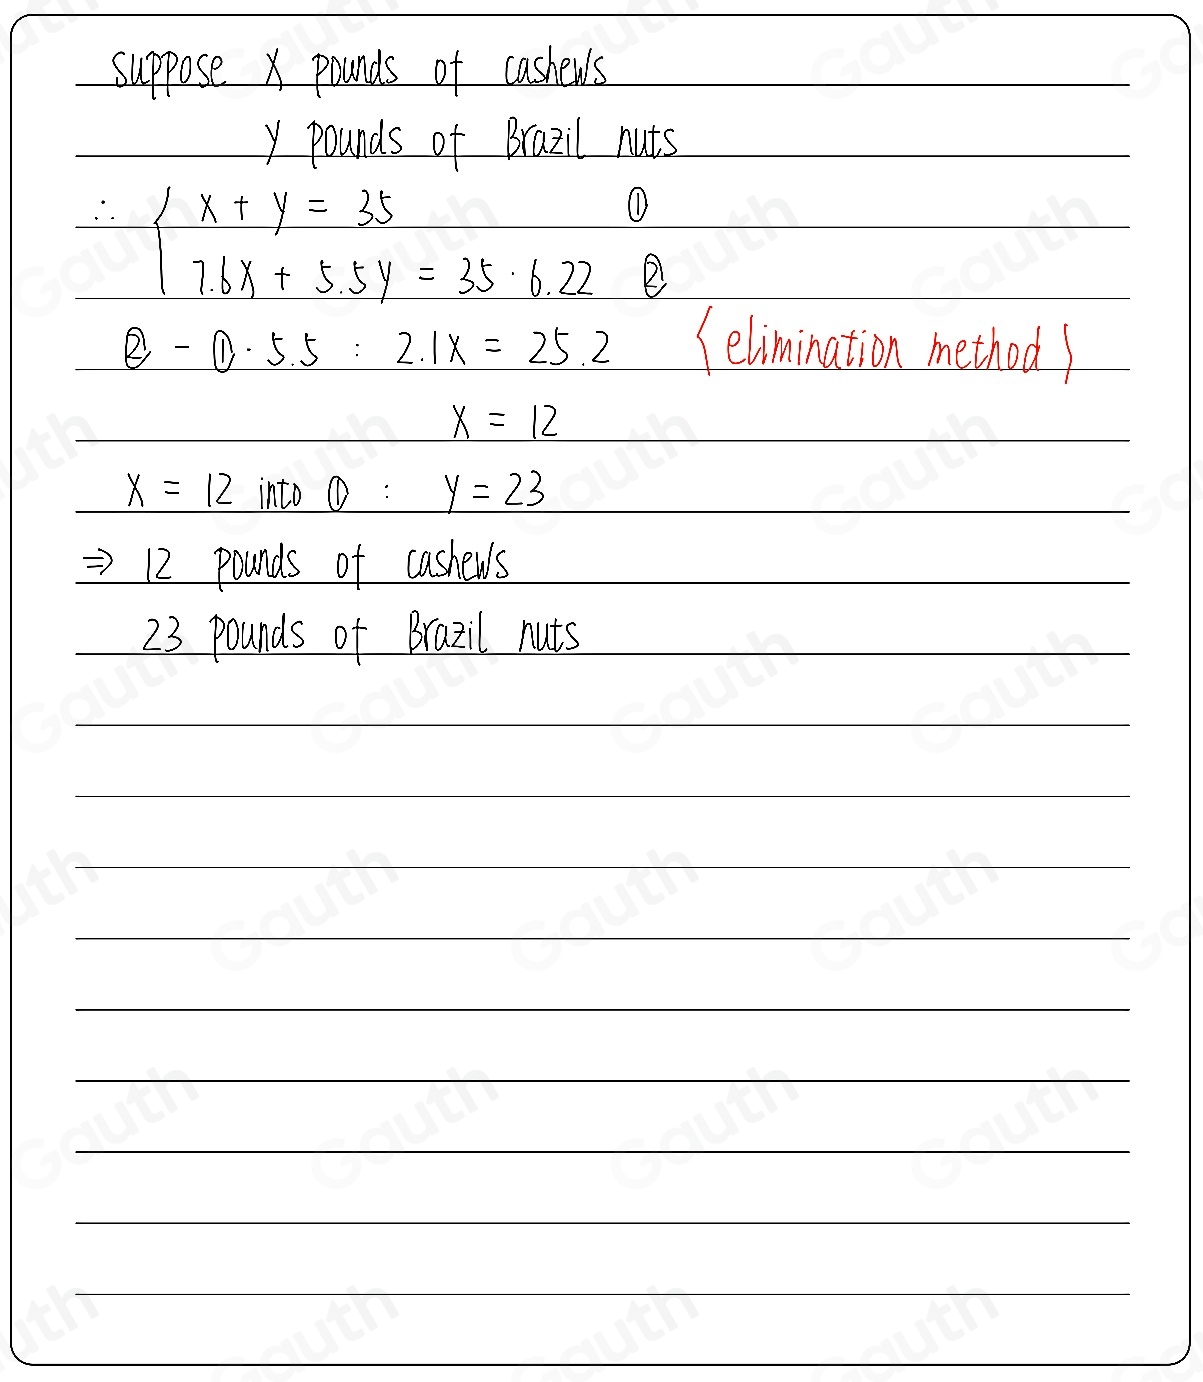 suppose x pounds of cashews
y pounds of Brazil nuts
∴ { x + y = 35 ①
7.6x + 5.5y = 35 · 6.22 ②
② - ① · 5.5 : 2.1x = 25.2 (elimination method)
x = 12
x = 12 into ① : y = 23
⇒ 12 pounds of cashews
23 pounds of Brazil nuts
Gauth